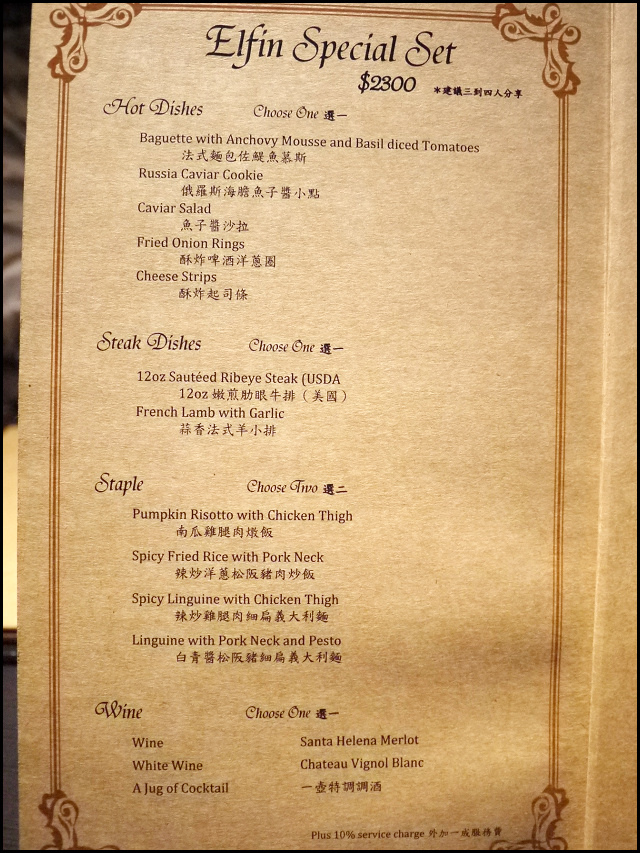 Elfin Special Set
$2300 *建議三到四人分享
Hot Dishes Choose One 選一
Baguette with Anchovy Mousse and Basil diced Tomatoes
法式麵包佐鯷魚慕斯
Russia Caviar Cookie
俄羅斯海膽魚子醬小點
Caviar Salad
魚子醬沙拉
Fried Onion Rings
酥炸啤酒洋蔥圈
Cheese Strips
酥炸起司條
Steak Dishes Choose One 選一
12oz Sautéed Ribeye Steak (USDA
12oz 嫩煎肋眼牛排（美國）
French Lamb with Garlic
蒜香法式羊小排
Staple Choose Two 選二
Pumpkin Risotto with Chicken Thigh
南瓜雞腿肉燉飯
Spicy Fried Rice with Pork Neck
辣炒洋蔥松阪豬肉炒飯
Spicy Linguine with Chicken Thigh
辣炒雞腿肉細扁義大利麵
Linguine with Pork Neck and Pesto
白青醬松阪豬細扁義大利麵
Wine Choose One 選一
Wine Santa Helena Merlot
White Wine Chateau Vignol Blanc
A Jug of Cocktail 一壺特調調酒
Plus 10% service charge 外加一成服務費